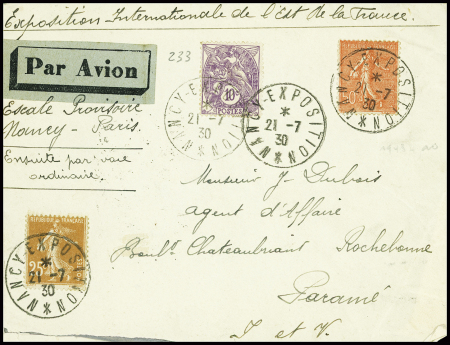 Exposition Internationale de l'Est de la France.
Par Avion
233
10c
POSTES
NANCY-EXPOSITION
21-7
30
NANCY-EXPOSITION
21-7
30
NANCY-EXPOSITION
21-7
30
Escale Provisoire
Nancy - Paris.
Ensuite par voie
ordinaire.
Monsieur J- Dubois
agent d'Affaire
Boulᵈ Chateaubriant Rochebonne
Paramé
I et V.
REPUBLIQUE FRANÇAISE
25c
NANCY-EXPOSITION
21-7
30